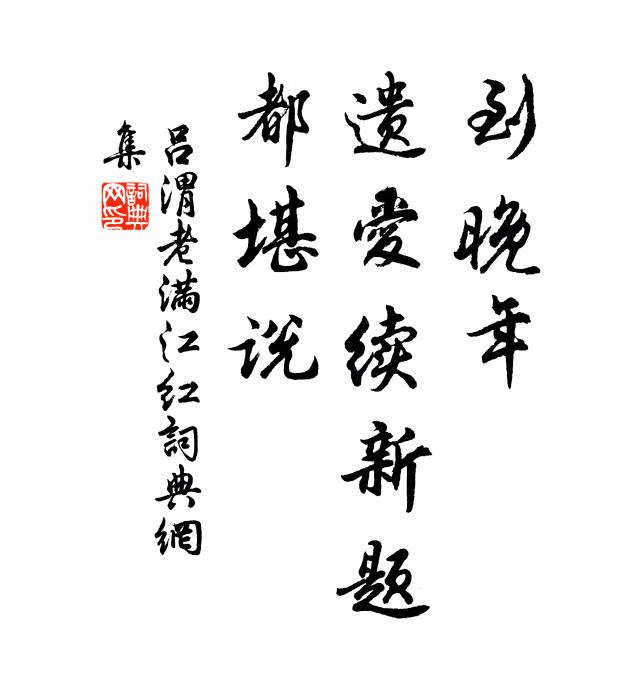 到晚年
遗爱续新题
都堪说
吕渭老满江红詞典網
集
詞典
网印